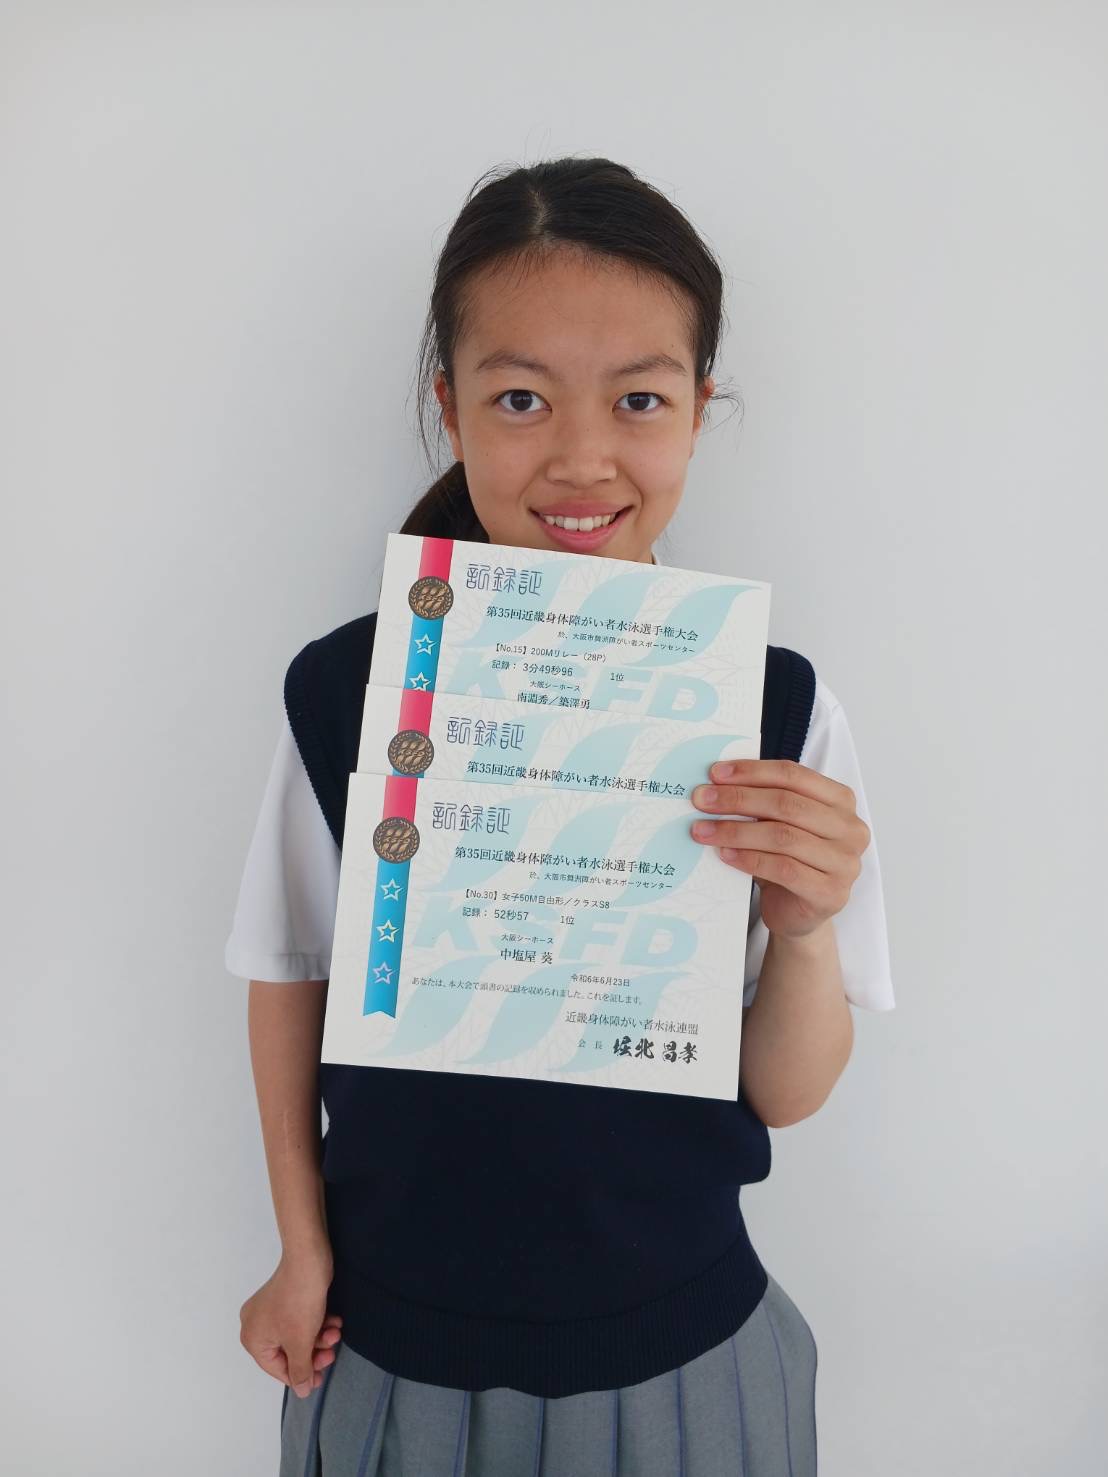 記録証
第35回近畿身体障がい者水泳選手権大会
於、大阪市舞洲障がい者スポーツセンター
【No.15】200Mリレー（28P）
記録： 3分49秒96 1位
大阪シーホース
南淵秀／築澤勇
KSFD
記録証
第35回近畿身体障がい者水泳選手権大会
記録証
第35回近畿身体障がい者水泳選手権大会
於、大阪市舞洲障がい者スポーツセンター
【No.30】女子50M自由形／クラスS8
記録： 52秒57 1位
KSFD
大阪シーホース
中塩屋 葵
令和6年6月23日
あなたは、本大会で頭書の記録を収められました。これを証します。
近畿身体障がい者水泳連盟
会 長 堀北 昌孝